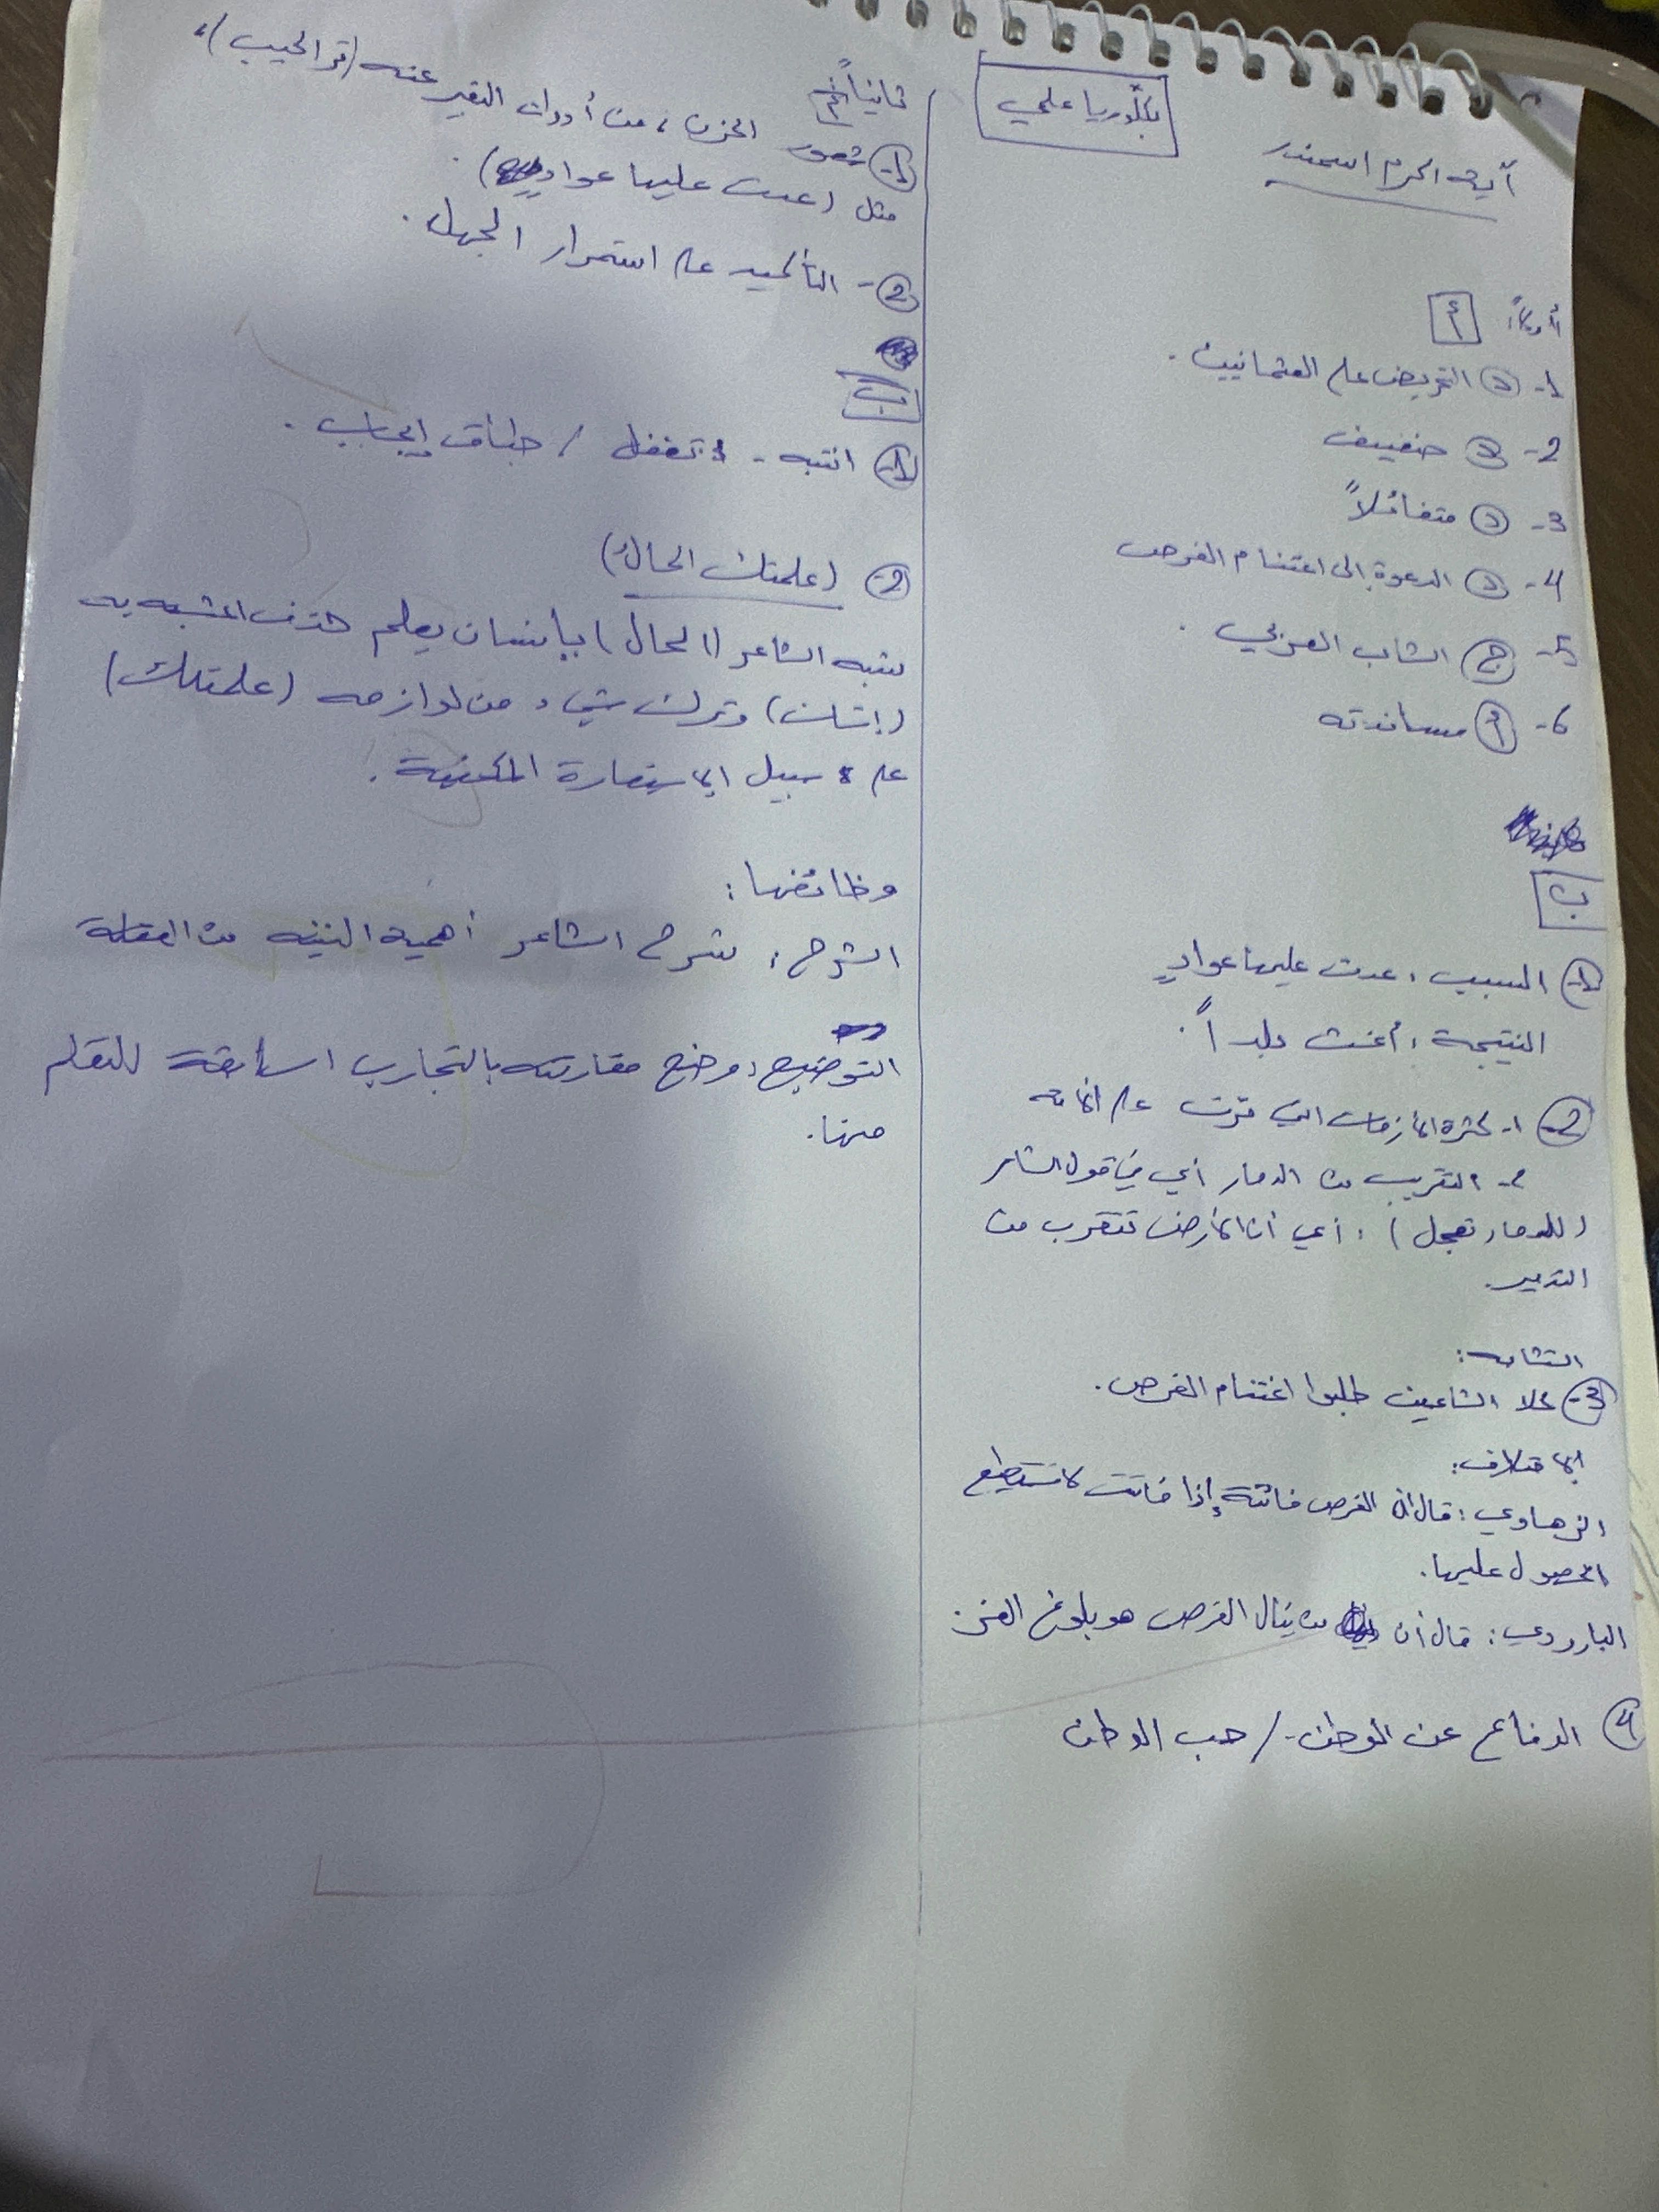 بكلوريا علمي
آية اكرم اسمندر
أولاً: أ
1- د التحريض على العثمانيين.
2- د ضعيف
3- د متفائلاً
4- د الدعوة إلى اغتنام الفرص
5- ج الشاب العربي.
6- أ مساندته
ب
1- السبب: عدت عليها عوادٍ
النتيجة: أخنت بلداً.
2- 1- كثرة الأزمات التي مرت على
2- التقريب من الدمار أي في قول الشاعر
(للدمار تعجل): أي أن الأرض تتقرب من
التدمير.
التشابه:
3- كلا الشاعرين طلبوا اغتنام الفرص.
الاختلاف:
الزهاوي: قال أن الفرص فائتة إذا فاتت لا نستطيع
الحصول عليها.
البارودي: قال أن من ينال الفرص هو بلوغ العز.
4 الدفاع عن الوطن - / حب الوطن
ثانياً: أ
1- شعور الحزن، من أدوات التعبير عنه (قر الحبيب)،
مثل (عدت عليها عوادٍ).
2- التأكيد على استمرار الجهل.
ب
1- انتبه - تغفل / طباق إيجاب.
2- (علمتك الحال)
شبه الشاعر (الحال) بإنسان يعلم حذف المشبه به
(إنسان) وترك شيء من لوازمه (علمتك)
على سبيل الاستعارة المكنية.
وظائفها:
الشرح: شرح الشاعر أهمية من الغفلة
التوضيح: وضح مقارنته بالتجارب السابقة للتعلم
منها.